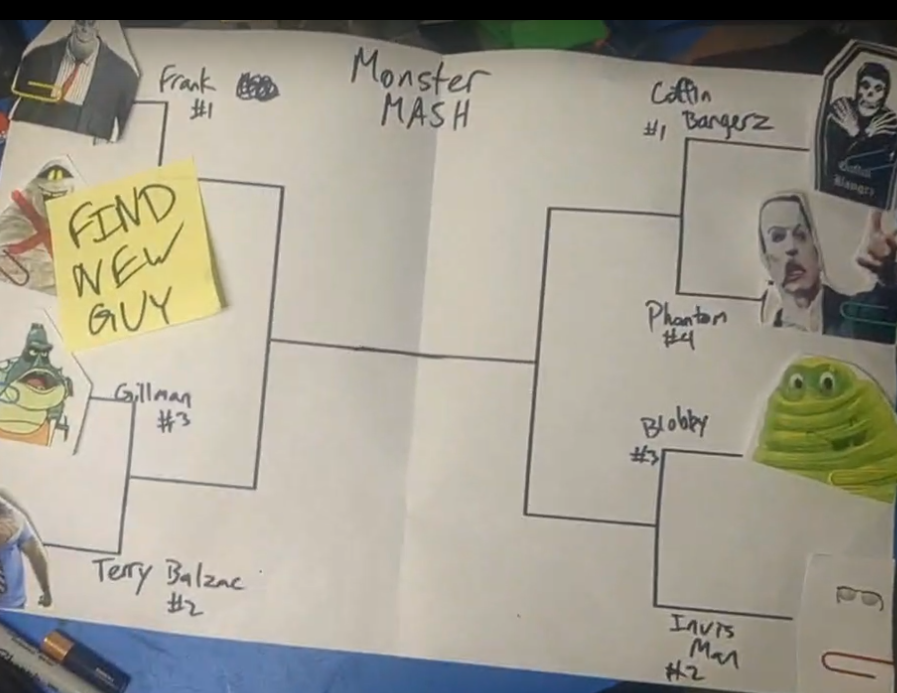 Monster
MASH
Frank
#1
FIND
NEW
GUY
Gillman
#3
Terry Balzac
#2
Coffin
#1 Bangerz
Coffin
Bangerz
Phantom
#4
Blobby
#3
Invis
Man
#2